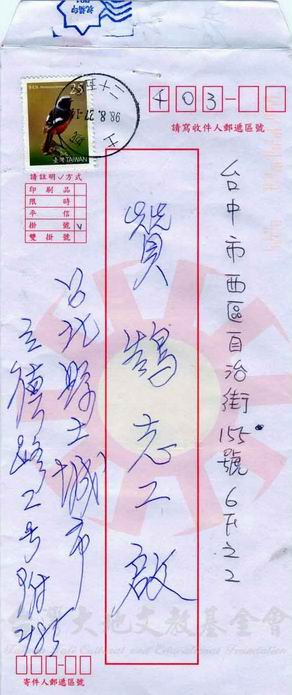 25
臺灣 TAIWAN
98.8.27
403-
請寫收件人郵遞區號
請註明✓方式
印刷品
限時
平信
掛號 v
雙掛號
台中市西區自治街155號6F之2
鵠志工啟
台北縣土城市
立德路2号附485
台灣大地文教基金會
Cultural and Educational Foundation
寄件人郵遞區號